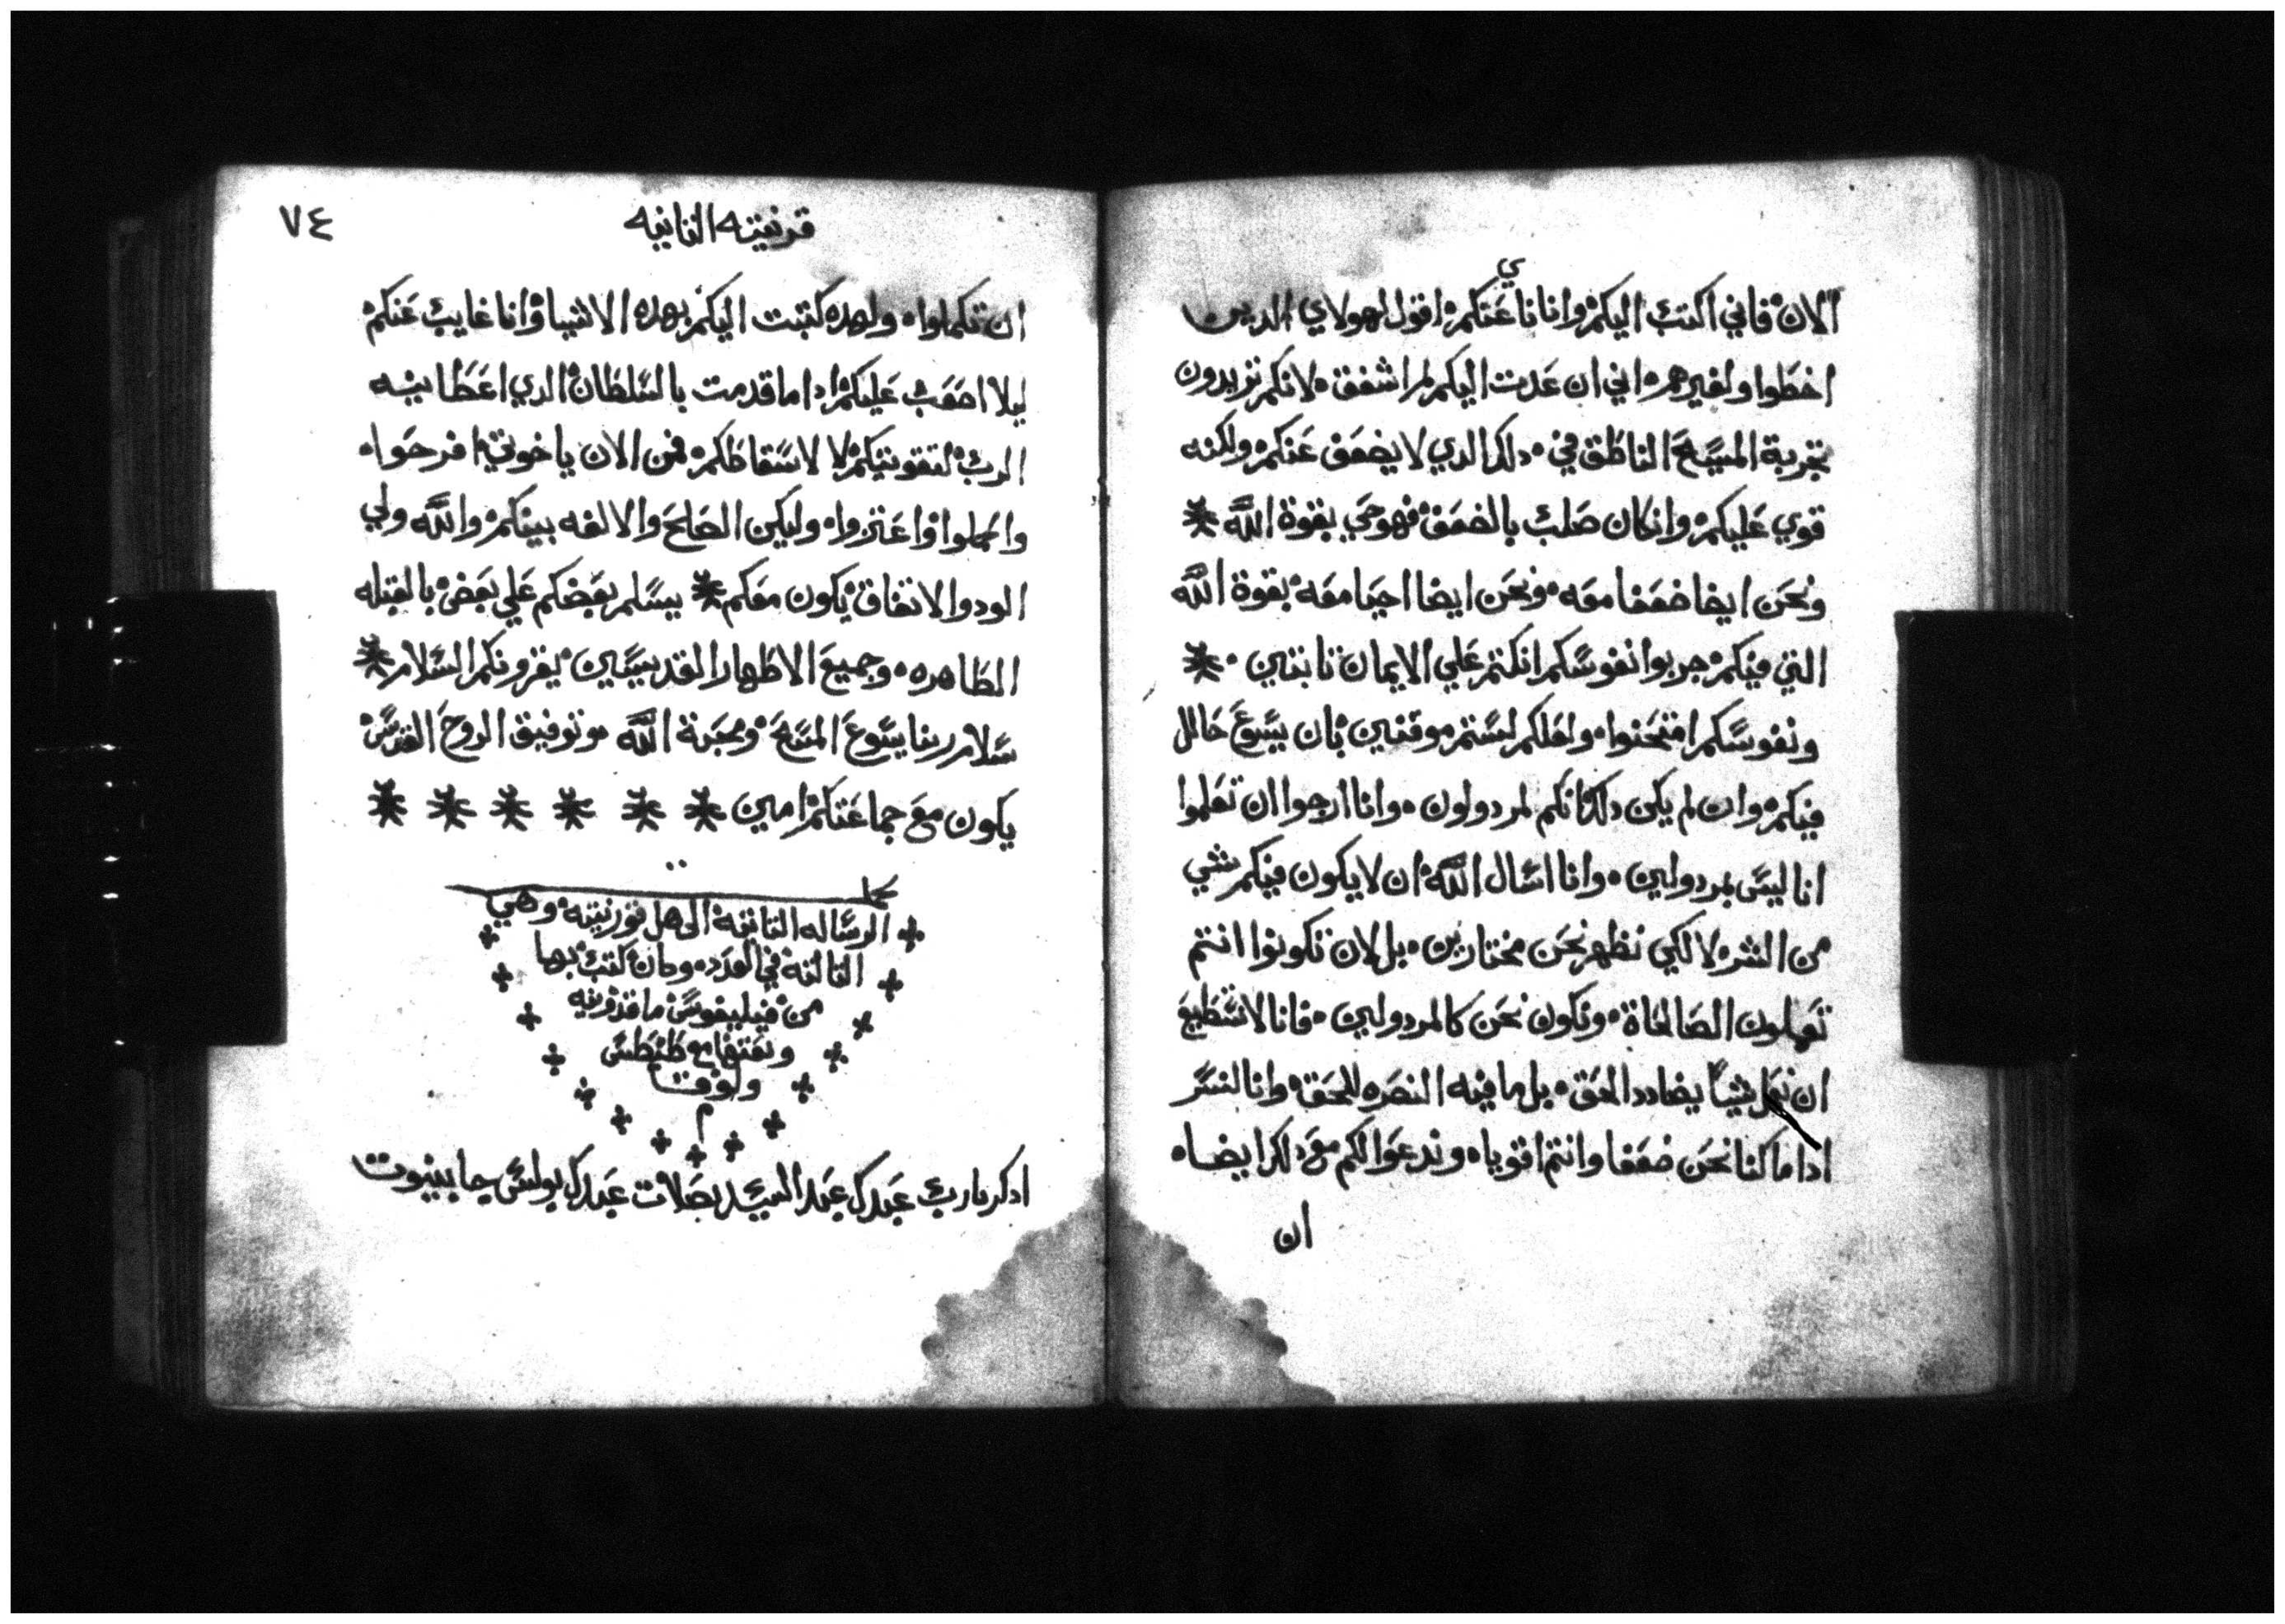 الان فاني اكتب اليكم وانا ناي عنكم اقول لهولاي الدين
اخطوا ولغيرهم اني ان عدت اليكم لم اشفق لانكم تريدون
تجربة المسيح الناطق في دلك الدي لا يضعف عنكم ولكنه
قوي عليكم وان كان صلب بالضعف فهو حي بقوة الله
ونحن ايضا ضعفا معه ونحن ايضا احيا معه بقوة الله
التي فيكم جربوا نفوسكم ان كنتم علي الايمان تابتين
ونفوسكم امتحنوا ولعلكم لستم موقنين بان يسوع حالل
فيكم وان لم يكن دلك انكم لمردولون وانا ارجوا ان تعلموا
انا ليس بمردولين وانا اسال الله ان لا يكون فيكم شي
من الشر لا لكي نظهر نحن مختارين بل لان تكونوا انتم
تعملون الصالحاة ونكون نحن كالمردولين فانا لا نستطيع
ان نعمل شياً يضادد الحق بل ما فيه النصره للحق وانا لنسر
ادا ما كنا نحن ضعفا وانتم اقويا وندعوا لكم مع دلك ايضا
ان
قرنتيه التانيه
٧٤
ان تكملوا ولهده كتبت اليكم بهده الاشيا وانا غايب عنكم
ليلا اصعب عليكم ادا ما قدمت بالسلطان الدي اعطانيه
الرب لتقويتكم لا لاسقاطكم فمن الان يا خوتي افرحوا
واكملوا واعتزوا وليكن الصلح والالفه بينكم والله ولي
الود والاتفاق يكون معكم يسلم بعضكم علي بعض بالقبله
الطاهره وجميع الاطهار القديسين يقرونكم السلام
سلام ربنا يسوع المسيح ومحبة الله وتوفيق الروح القدس
يكون مع جماعتكم امين
كملت
الرساله التانية الي اهل قورنتية وهي
التالتة في العدد وكان كتب بها
من فيليفوس ماقدونيه
وبعتها مع طيطس
ولوقا
م
ادكر يارب عبدك عبد السيد بصلات عبدك بولس